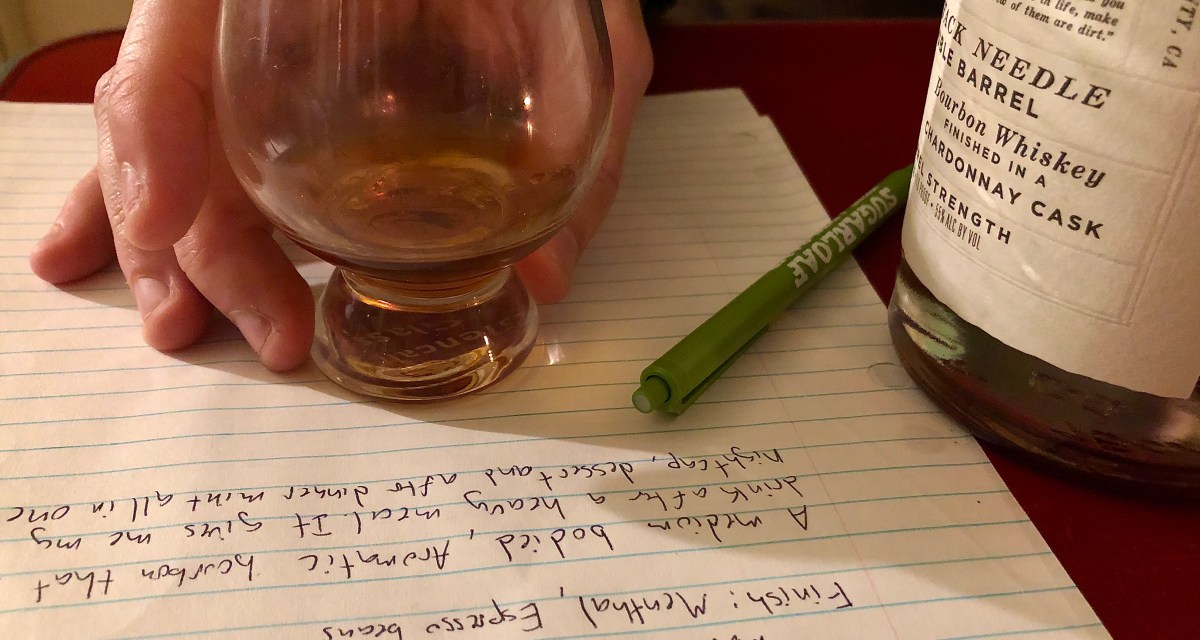 you
in life, make
of them are dirt."
TY, CA
ACK NEEDLE
BLE BARREL
Bourbon Whiskey
FINISHED IN A
CHARDONNAY CASK
STRENGTH
55% ALC BY VOL
SUGARLOAF
Finish: Menthal, Espresso beans
A medium bodied, Aromatic bourbon that
drink after a heavy meal. It gives me my
nightcap, dessert and after dinner mint all in one